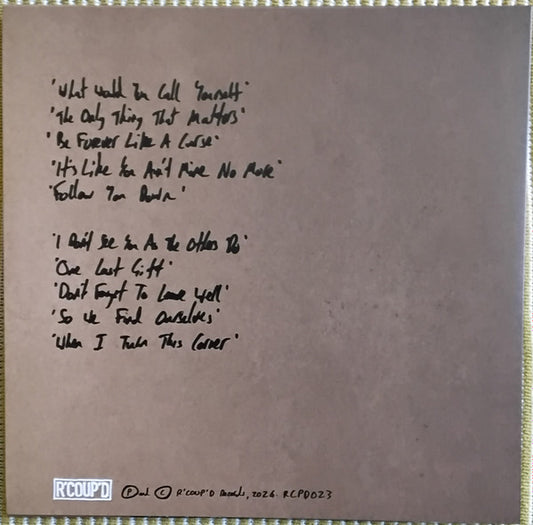 'What Would You Call Yourself'
'The Only Thing That Matters'
'Be Forever Like A Curse'
'It's Like You Ain't Mine No More'
'Follow You Down'
'I Don't See You As The Others Do'
'One Last Gift'
'Don't Forget To Leave Well'
'So We Find Ourselves'
'When I Turn This Corner'
R'COUP'D Ⓟ and © R'COUP'D Records, 2026. RCPD023